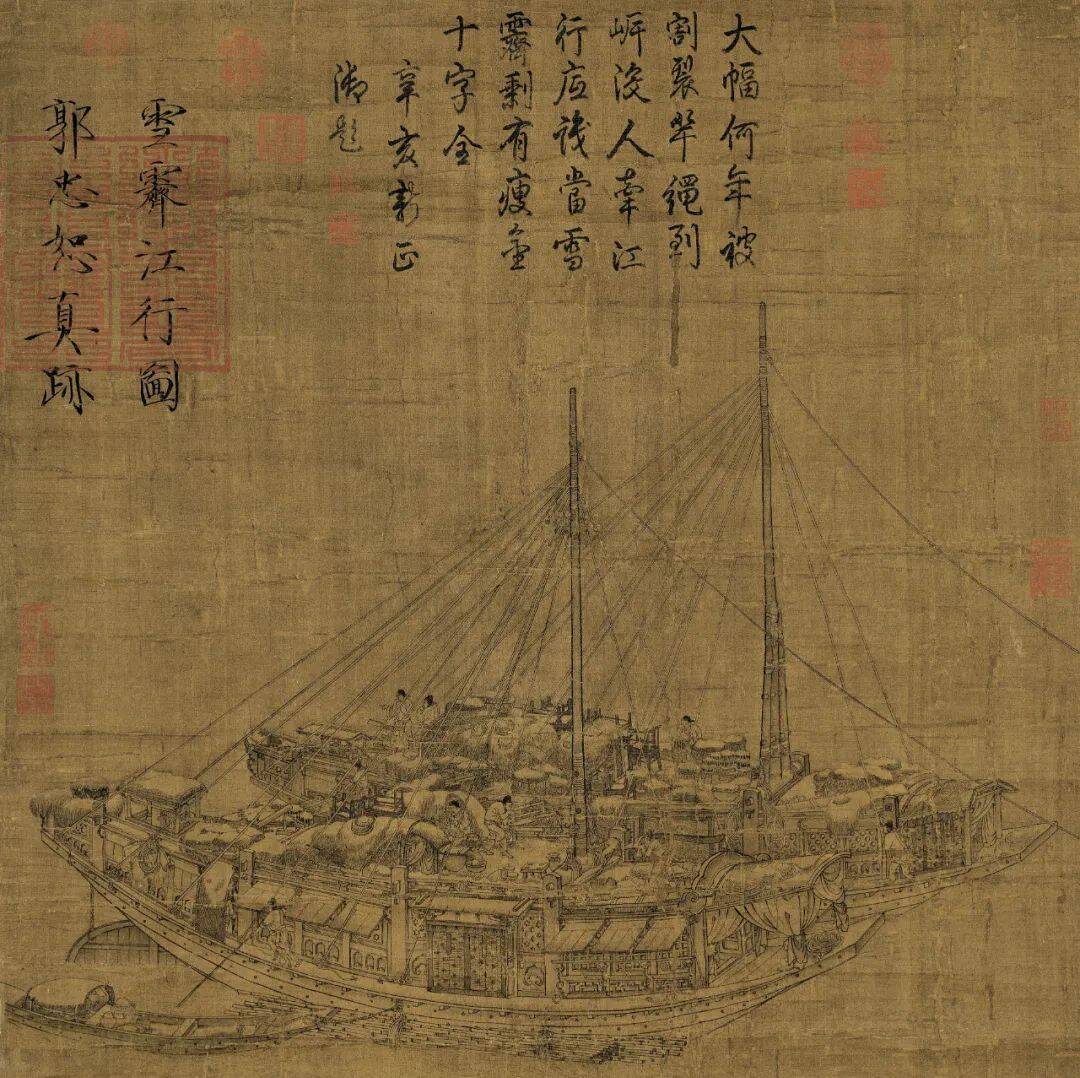 大幅何年被
割裂犖繩到
岸没人牽江
行应識當雪
霽剩有瘦金
十字全
辛亥新正
御题
雪霽江行圖
郭忠恕真跡